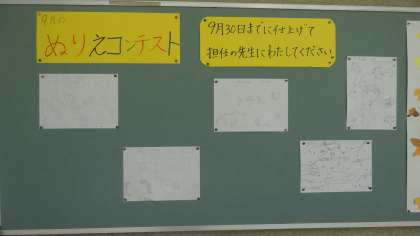 9月の
ぬりえコンテスト
9月30日までに仕上げて
担任の先生にわたしてください。